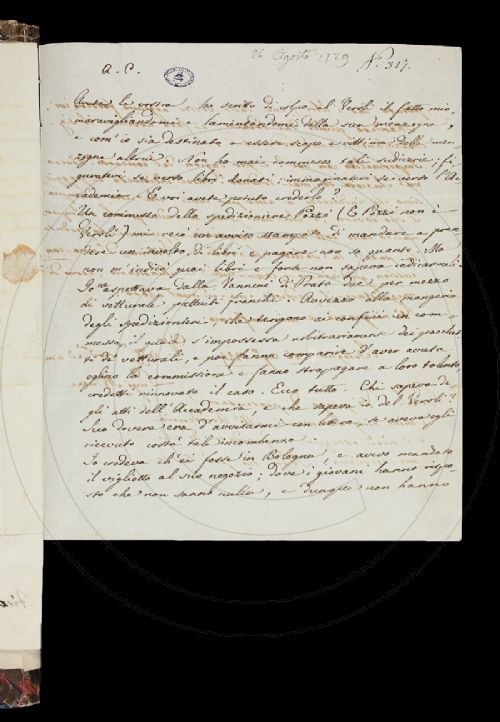 26 Agosto 1829 No. 317.
A. C.
Avuta la vostra, ho scritto di colpo al Veroli il fatto mio,
maravigliandomi e lamentandomi della sua menzogna,
e com'io sia destinato a essere scopo e vittima delle men-
zogne altrui. Non ho mai commesso tali sudicerie, fi
guratevi se verso libri donati, immaginatevi se verso l'Ac
cademia. E voi avete potuto crederlo?
Un commesso dello spedizioniere Pozzi (E Pozzi non è
Veroli) mi recò un avviso stampato di mandare a pren
dere un involto di libri e pagare non so quanto. Ma
non m'indicò quai libri e forse non sapeva indicarmeli.
Io ne aspettava dalla Vannini di Prato due per mezzo
di vetturali, pattuiti franchi. Avvezzo alla mangeria
degli spedizionieri che tengono ai confini un com-
messo, il quale s'impossessa arbitrariamente dei pacchet
ti de' vetturali, e poi fanno comparire d'aver avuta
eglino la commissione e fanno strapagare a loro talento,
credetti rinnovato il caso. Ecco tutto. Chi sapeva de-
gli atti dell'Accademia, e che sapeva io del Veroli?
Suo dovere era d'avvisarmi con lettera, se aveva egli
ricevuto costà tale incombenza.
Io credeva ch'ei fosse in Bologna, e avevo mandato
il viglietto al suo negozio; dove i giovani hanno rispo-
sto che non sanno nulla, e dunque non hanno